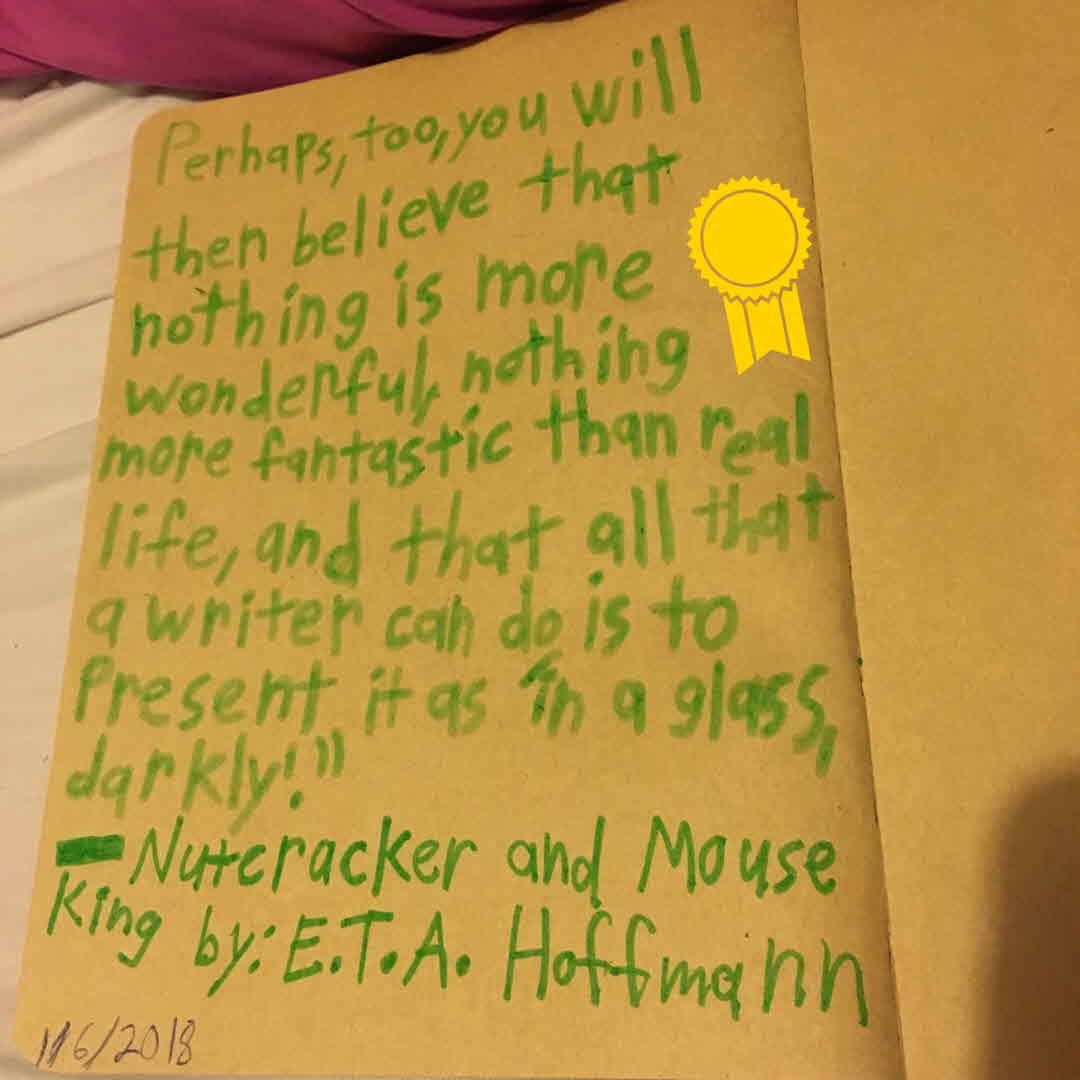 Perhaps, too, you will
then believe that
nothing is more
wonderful, nothing
more fantastic than real
life, and that all that
a writer can do is to
Present it as "in a glass,
darkly!"
- Nutcracker and Mouse
King by: E.T.A. Hoffmann
1/6/2018